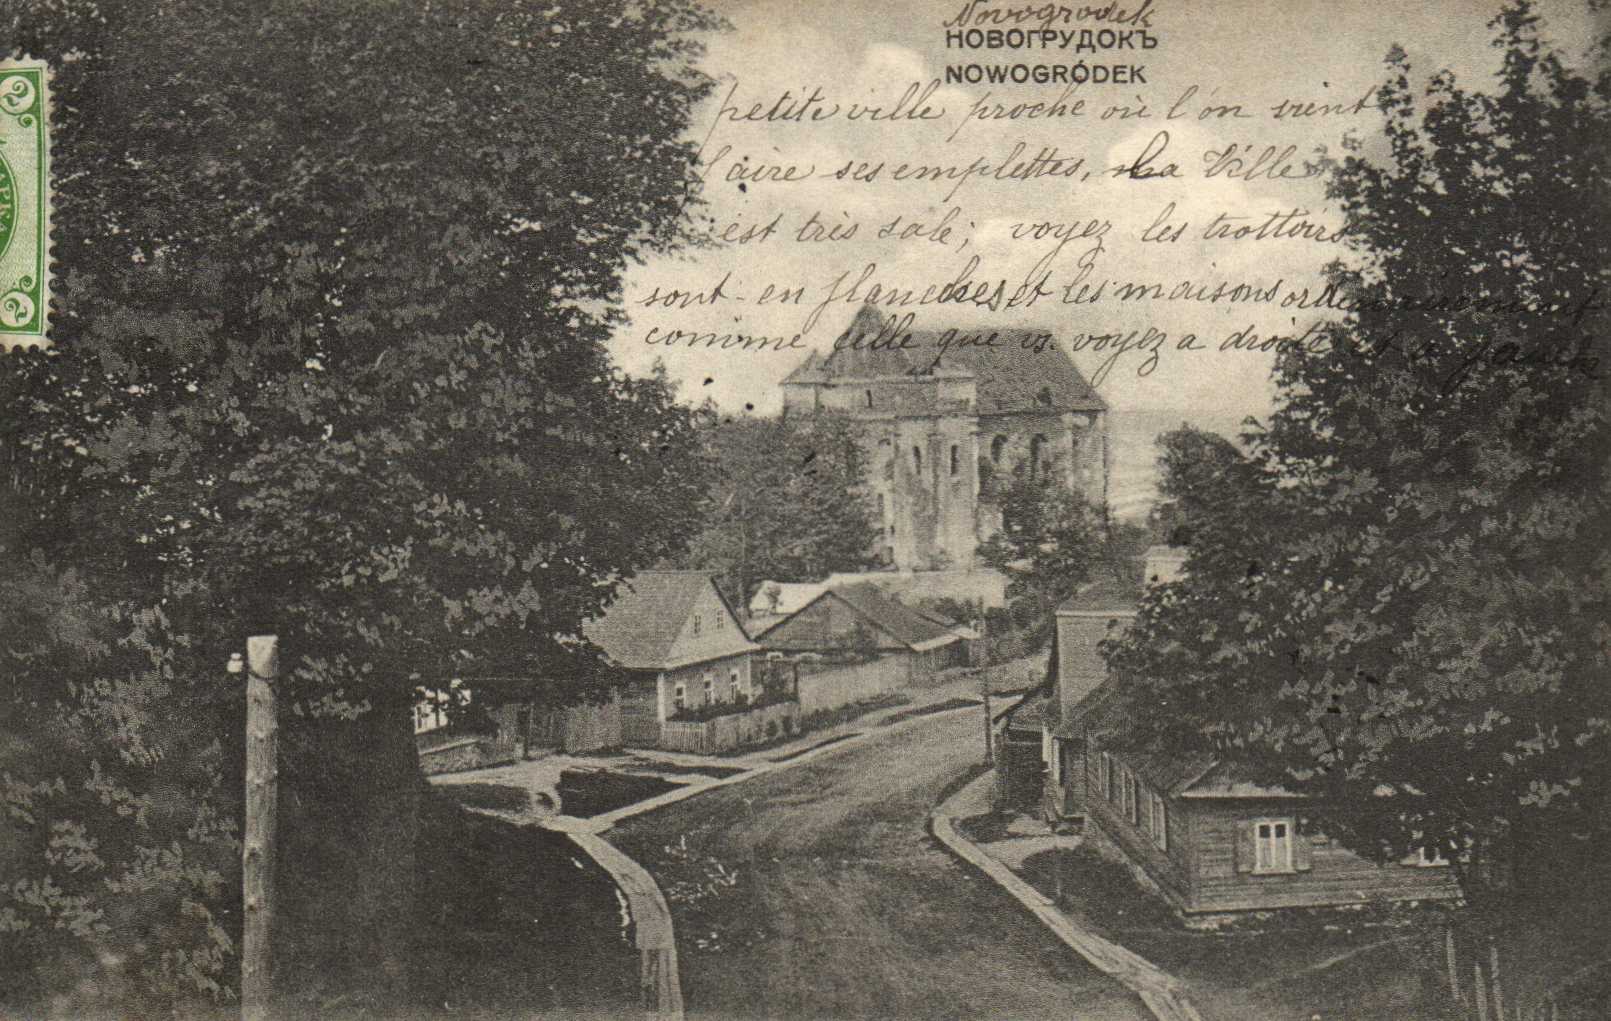 Novogrodek
НОВОГРУДОКЪ
NOWOGRÓDEK
petite ville proche où l'on vient
faire ses emplettes, La Ville
est très sale; voyez les trottoirs
sont en planches et les maisons ordinairement
comme celle que vs. voyez a droite et a gauche
2
2